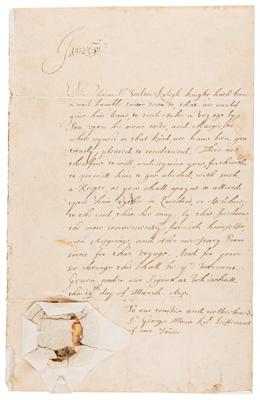 James R
Whereas Sr Walter Ralegh knight hath been
a most humble suitor unto us that we would
give him leave, to undertake a voyage by
Sea upon his owne costs, and charges, the
which request in that kind, we have been gra-
ciously pleased to condescend. These are
therefore to will, and require you, forthwith
to permitt him to goe abroad, with such
a Keeper as you shall appoynt to attend
upon him
to the end that he may, by that freedome
the more conveniently, furnish himself
with shipping, and other necessary
for that voyage. And for your
discharge this shalbe yr Warrant.
Given under our Signet at Whitehall
the 19th day of March
To our trustie and welbeloved
Sr George More knt Lieftenant
of our Tower